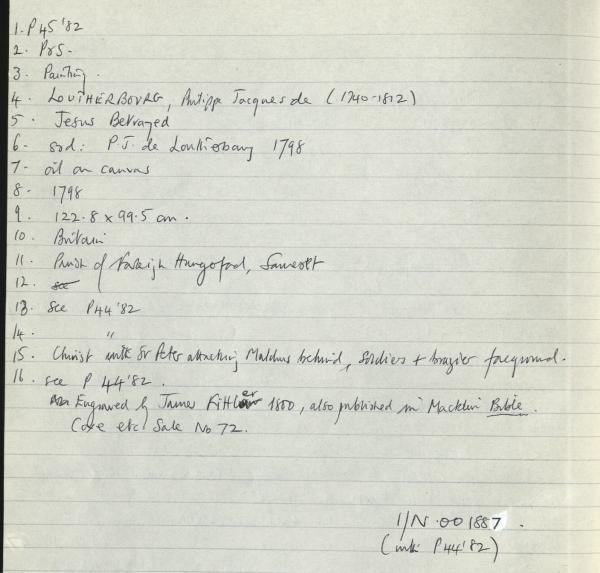 1. P45'82
2. P&S.
3. Painting.
4. LOUTHERBOURG, Philippe Jacques de (1740-1812)
5. Jesus Betrayed
6. sgd: P.J. de Loutherbourg 1798
7. oil on canvas
8. 1798
9. 122.8 x 99.5 cm.
10. Britain
11. Parish of Farleigh Hungerford, Somerset
12. see
13. see P44'82
14. "
15. Christ with St Peter attacking Malchus behind, soldiers + brazier foreground.
16. see P 44'82.
Engraved by James Fittler 1800, also published in Macklin Bible.
Coxe etc Sale No 72.
I/N 001887.
(with P44'82)